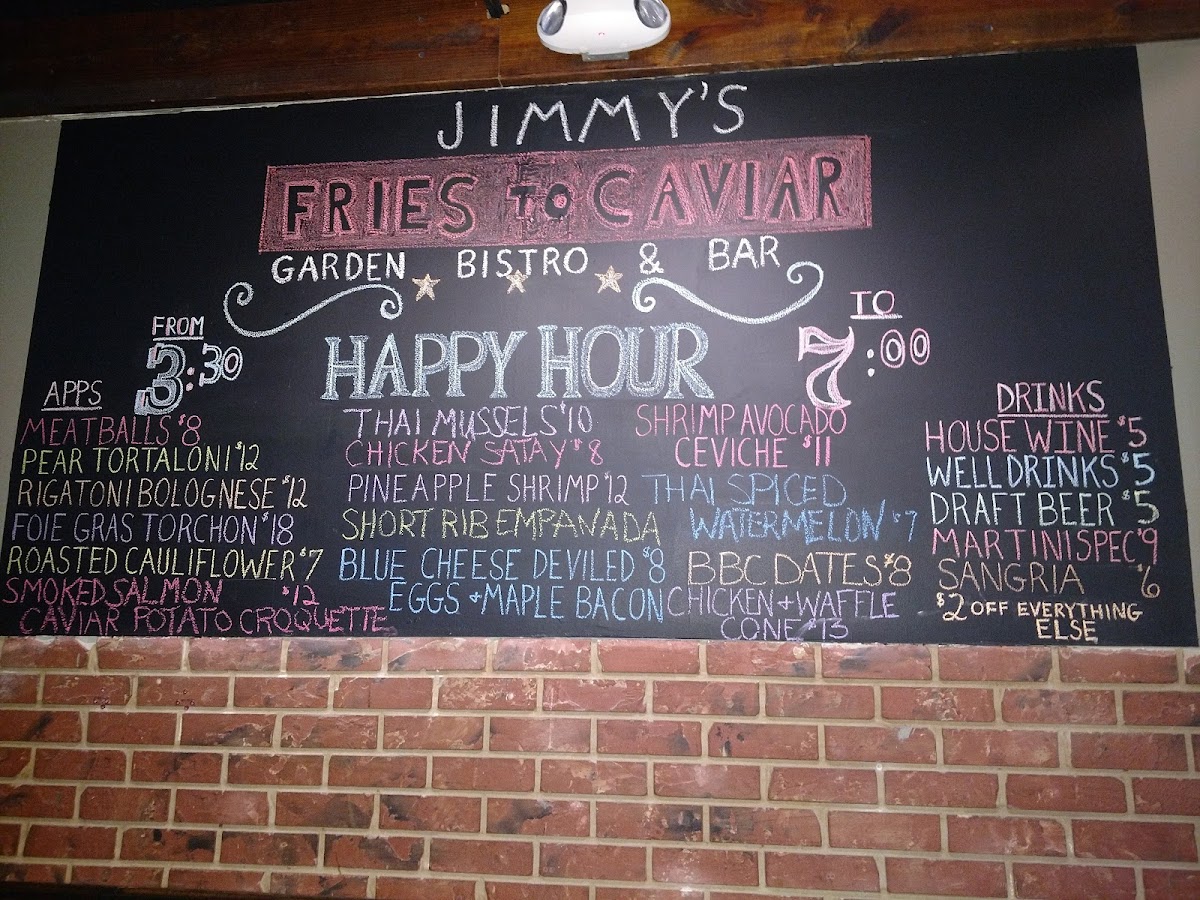 JIMMY'S
FRIES TO CAVIAR
GARDEN BISTRO & BAR
FROM
3:30
HAPPY HOUR
TO
7:00
APPS
MEATBALLS $8
PEAR TORTALONI $12
RIGATONI BOLOGNESE $12
FOIE GRAS TORCHON $18
ROASTED CAULIFLOWER $7
SMOKED SALMON $12
CAVIAR POTATO CROQUETTE
THAI MUSSELS $10
CHICKEN SATAY $8
PINEAPPLE SHRIMP $12
SHORT RIB EMPANADA
BLUE CHEESE DEVILED $8
EGGS + MAPLE BACON
SHRIMP AVOCADO
CEVICHE $11
THAI SPICED
WATERMELON $7
BBC DATES $8
CHICKEN + WAFFLE
CONE $13
DRINKS
HOUSE WINE $5
WELL DRINKS $5
DRAFT BEER $5
MARTINI SPEC $9
SANGRIA $6
$2 OFF EVERYTHING
ELSE